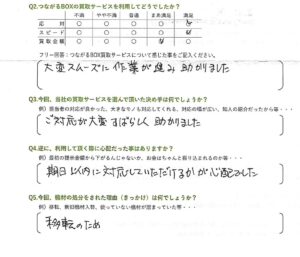 Q2.つながるBOXの買取サービスを利用してどうでしたか？
不満 やや不満 普通 まあ満足 満足
応対 ○ ○ ○ ○
スピード ○ ○ ○ ○
買取金額 ○ ○ ○ ○
フリー回答：つながるBOX買取サービスについて感じた事をご記入ください。
大変スムーズに作業が進み助かりました
Q3.今回、当社の買取サービスを選んで頂いた決め手は何でしょうか？
例）担当者の対応が良かった、大きなモノも対応してくれる、対応の幅が広い、知人の紹介だったから等・・・
ご対応が大変すばらしく助かりました
Q4.逆に、利用して頂く際に心配だった事はありますか？
例）最初の提示金額から下がるんじゃないか、お金はちゃんと振り込まれるのか等・・・
期日以内に対応していただけるかが心配でした
Q5.今回、機材の処分をされた理由（きっかけ）は何でしょうか？
例）移転、新旧機材入替、使っていない機材が溜まっていた等・・・
移転のため